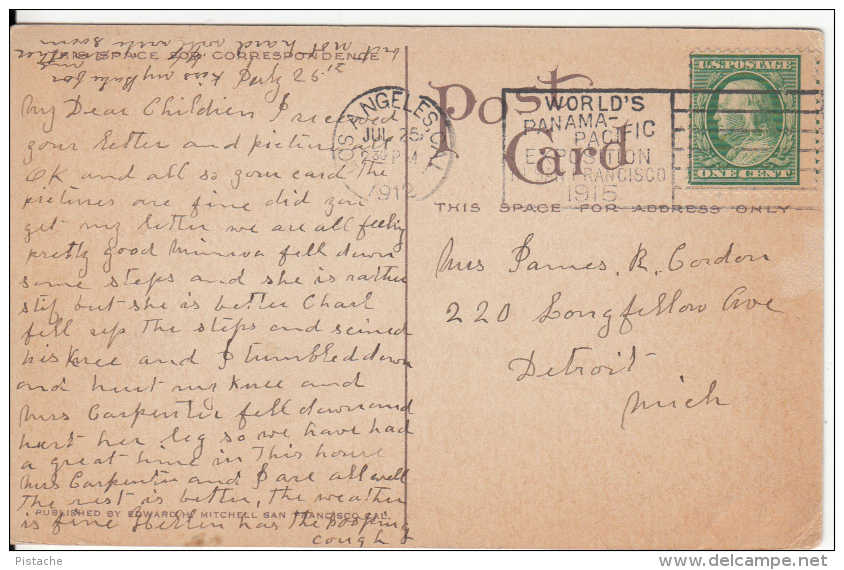 THIS SPACE FOR CORRESPONDENCE
July 25
My Dear Children I received
your letter and pictures all
OK and all so your card the
pictures are fine did you
get my letter we are all feeling
pretty good Minnva fell down
some steps and she is rather
stif but she is better Charl
fell up the steps and scined
his Knee and I tumbled down
and hurt my Knee and
Mrs Carpenter fell down and
hurt her leg so we have had
a great time in This house
Mrs Carpenter and I are all well
The rest is better, the weather
is fine Hellen has the
cough
PUBLISHED BY EDWARD H. MITCHELL SAN FRANCISCO CAL.
Kiss my Babe for
not hard will write soon
Post
Card
THIS SPACE FOR ADDRESS ONLY
LOS ANGELES, CAL.
JUL 25
2 30 PM
1912
WORLD'S
PANAMA-
PACIFIC
EXPOSITION
SAN FRANCISCO
1915
U.S. POSTAGE
ONE CENT
Mrs James. R. Gordon
220 Longfellow Ave
Detroit
Mich
Pistache
www.delcampe.net